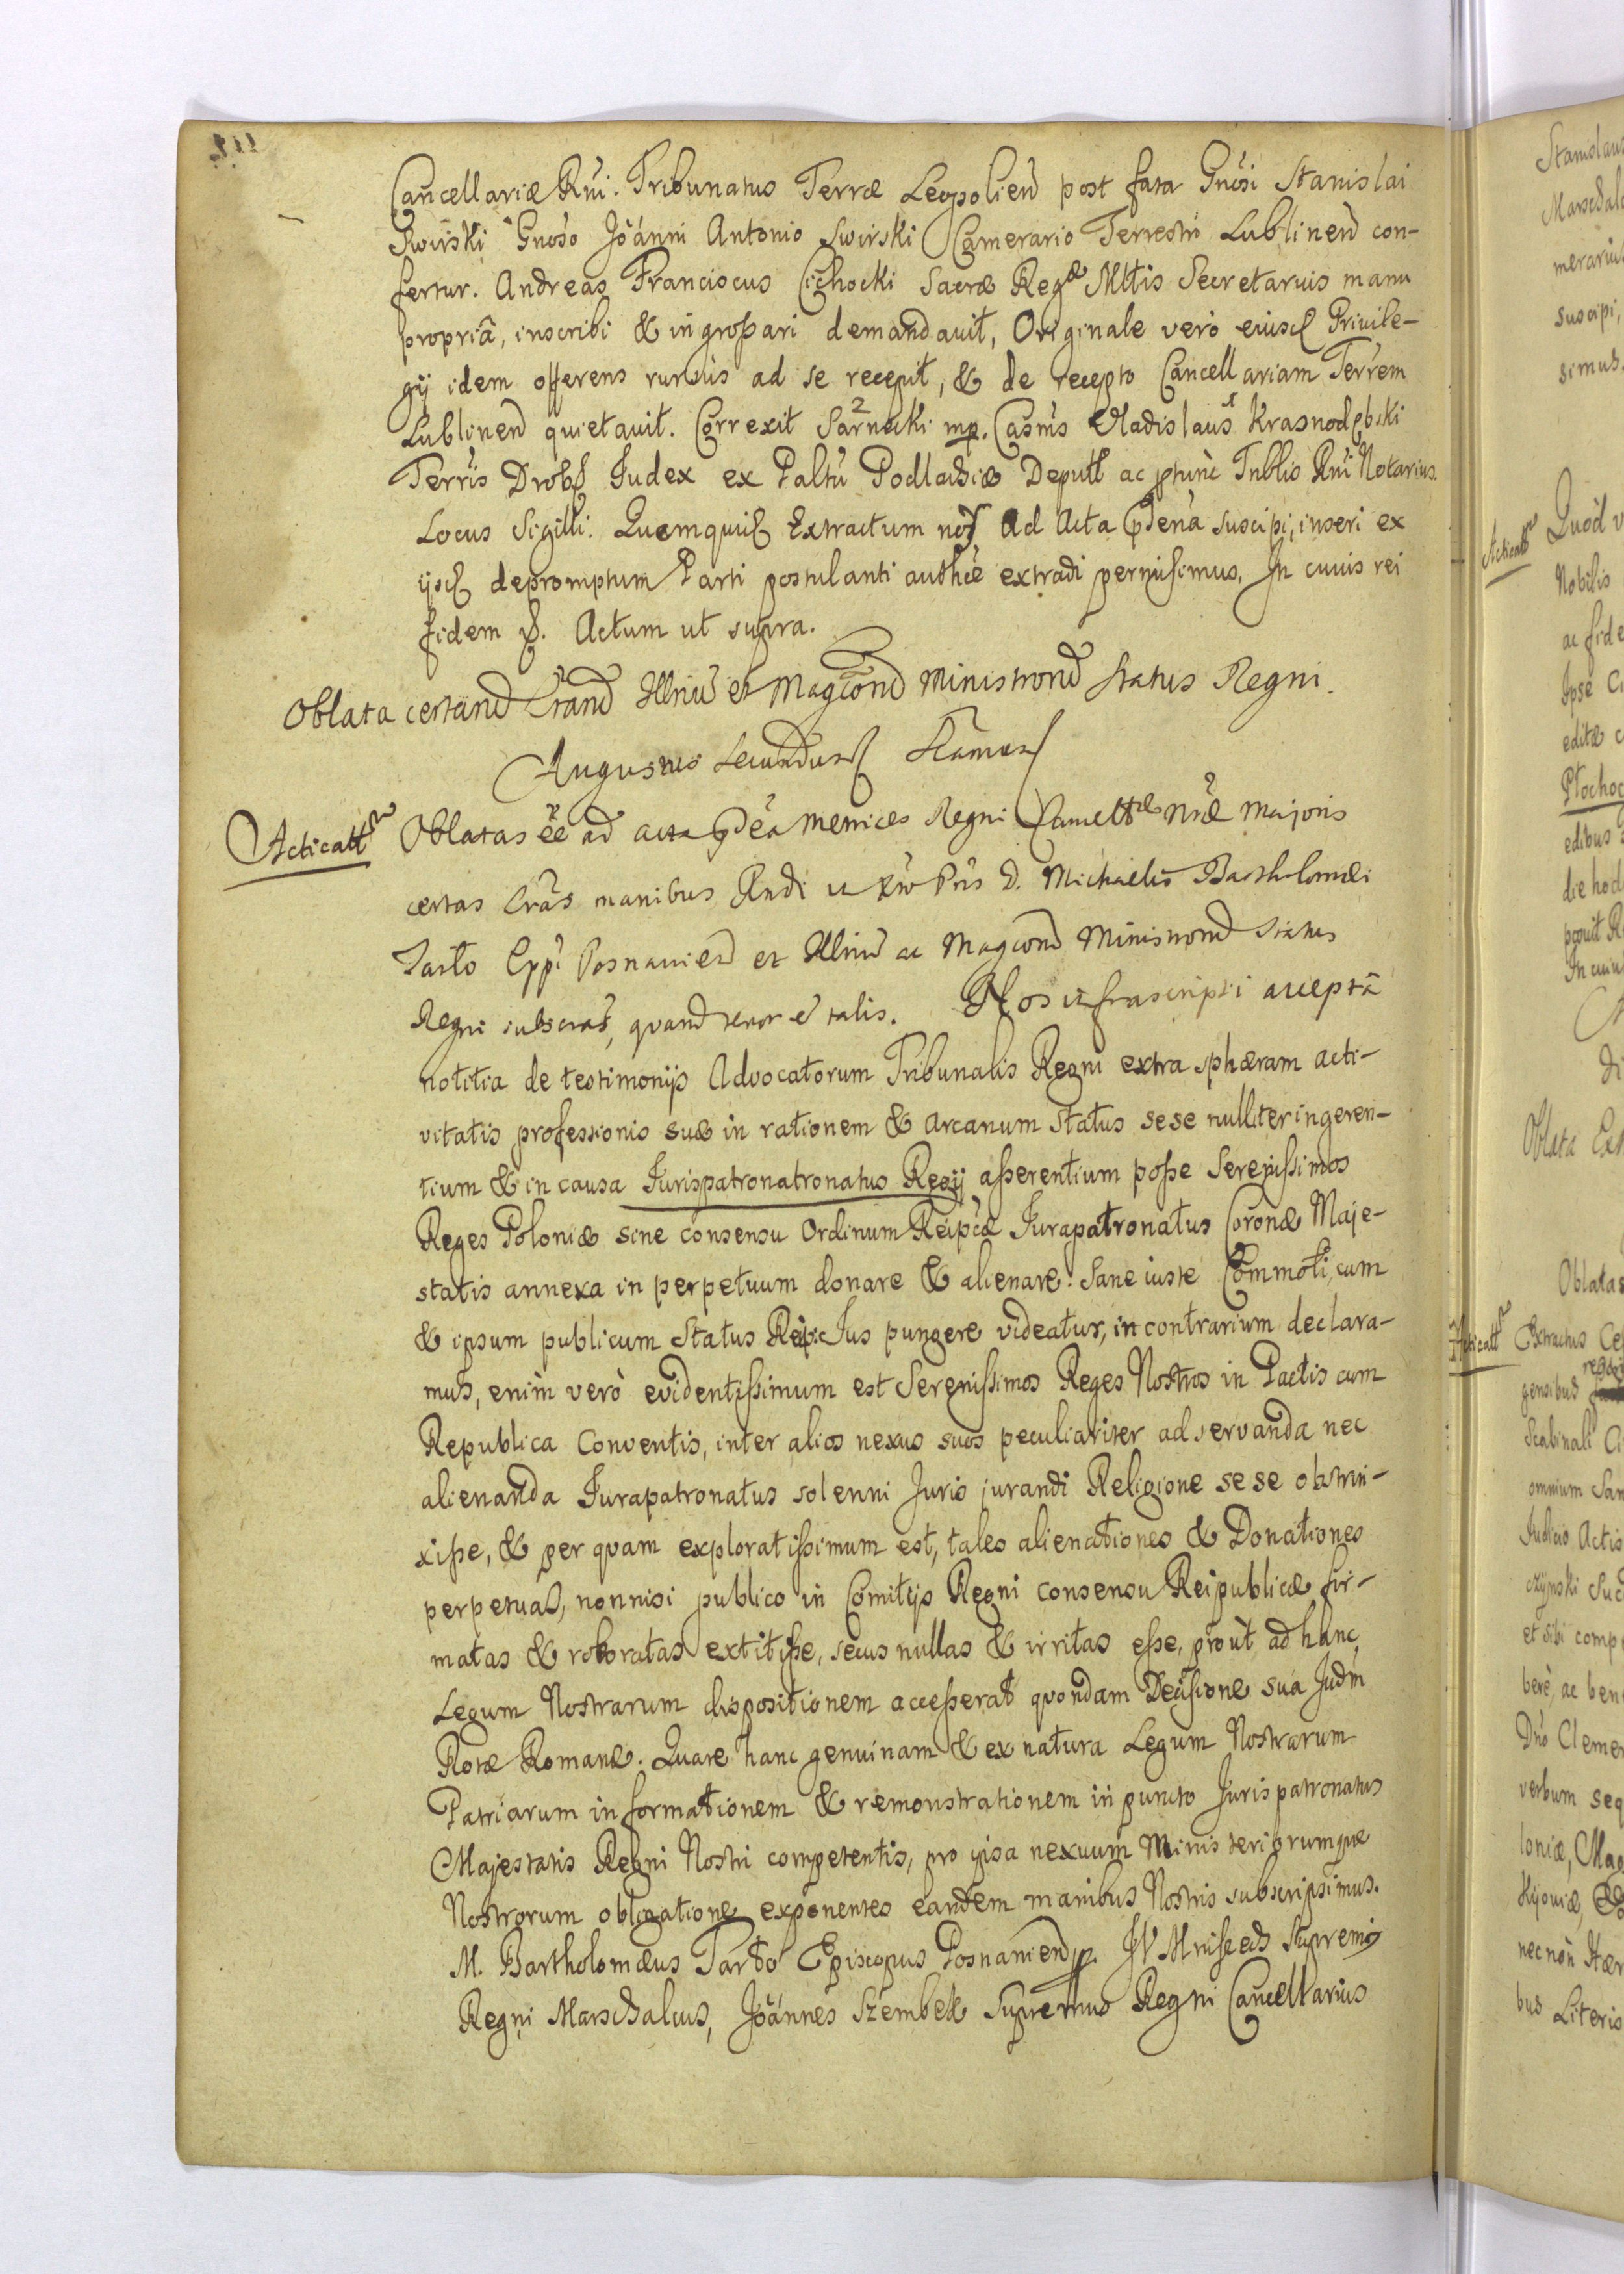 Cancellariæ Rni. Tribunatus Terræ Leopolien post fata Gnosi Stanislai
Swirski Gnoso Joánni Antonio Swirski Camerario Terrestri Lublinen con-
fertur. Andreas Franciscus Cichocki Sacræ Regæ Mttis Secretarius manu
propriâ, inscribi & ingrossari demandavit, Originale verò eiusd Privile-
gij idem offerens rursùs ad se recepit, & de recepto Cancellariam Terrem
Lublinen quietavit. Correxit Sarnacki mp. Casms Vladislaus Krasnodębski
Terris Judex ex Paltu Podlachiæ Deputt ac ptunc Tnblis Rni Notarius.
Locus Sigilli. Quemquid Extractum nos ad Acta pdena suscipi, inseri ex
ijsd depromptum Parti postulanti authce extradi permisimus. In cuius rei
fidem p. Actum ut supra.
Oblata certand Lrand Illriu et Magcond Ministrond Status Regni.
Augustus Secundus
Acticatt Oblatas ee ad acta pdea Metrices Regni Cancellæ nræ Majoris
certas Lras manibus Rndi in Xto Pris D. Michaelis Bartholomæi
Tarło Eppi Posnanien et Illriu ac Magcond Ministrond Status
Regni subscras, quand tenor e talis. Nos infrascripti acceptâ
notitia de testimonijs Advocatorum Tribunalis Regni extra sphæram acti-
vitatis professionis suæ in rationem & Arcanum Status sese nulliter ingeren-
tium & in causa Jurispatronatronatus Regij asserentium posse Serenissimos
Reges Poloniæ sine consensu Ordinum Reipcæ Jurapatronatus Coronæ Maje-
statis annexa in perpetuum donare & alienare: Sane iuste Commoti, cum
& ipsum publicum Status Reip: Jus pungere videatur, in contrarium declara-
mus, enim verò evidentissimum est Serenissimos Reges Nostros in Pactis cum
Republica Conventis, inter alios nexus suos peculiariter adservanda nec
alienanda Jurapatronatus solenni Juris jurandi Religione sese obstrin-
xisse, & per quam exploratissimum est, tales alienationes & Donationes
perpetuas, nonnisi publico in Comitijs Regni consensu Reipublicæ fir-
matas & roboratas extitisse, secus nullas & irritas esse, proùt ad hanc
Legum Nostrarum dispositionem accesserat quondam Decisione suà Judm
Rotæ Romanæ. Quare hanc genuinam & ex natura Legum Nostrarum
Patriarum informationem & remonstrationem in puncto Jurispatronatus
Majestatis Regni Nostri competentis, pro ipsa nexuum Ministeriorumque
Nostrorum obligatione exponentes eandem manibus Nostris subscripsimus.
M. Bartholomæus Tarło Episcopus Posnanien mp. JW Mniszech Supremus
Regni Marschalcus, Joánnes Szembek Supremus Regni Cancellarius